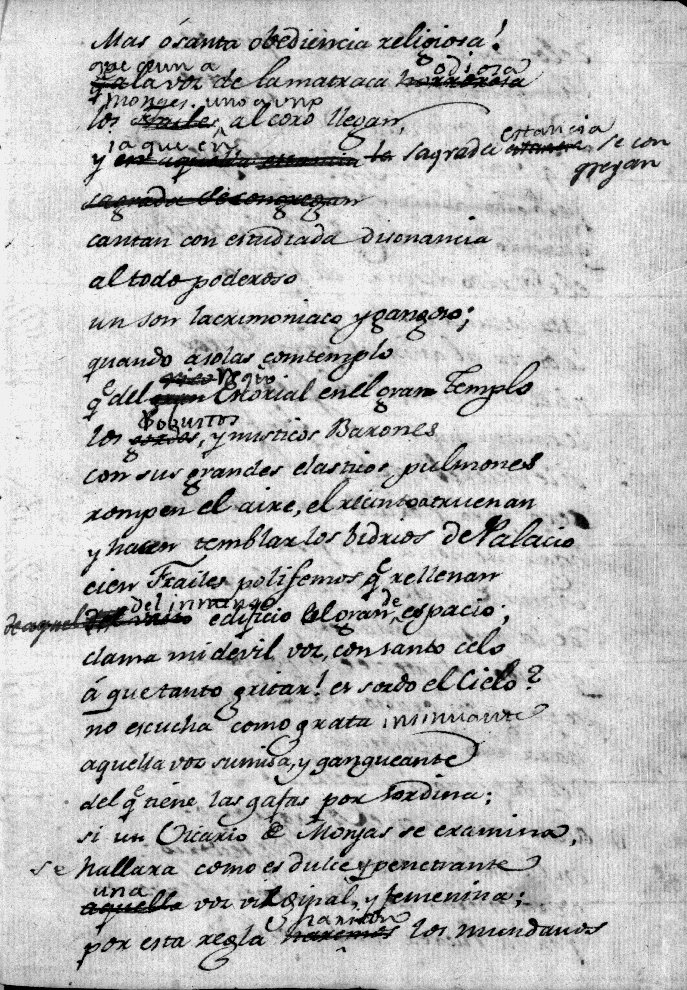 Mas ó santa obediencia religiosa!
que aun a odiosa
q.e a la voz de la matraca horrorosa
monges, uno a uno
los frailes al coro llegan,
ia que en estancia
y en aquella estancia la sagrada estancia se con
gregan
sagrada se congregan
cantan con estudiada disonancia
al todo poderoso
un son lacrimoniaco y gangoso;
quando a solas comtemplo
regio
q.e del gran Escorial en el gran Templo
robustos
los gordos, y misticos Barones
con sus grandes elasticos pulmones
rompen el aire, el recinto atruenan
y hacen temblar los bidrios de Palacio
cien Frailes polifemos q.e rellenan
del inmenso de
de aquel del vasto edificio el gran espacio;
clama mi devil voz, con santo celo
á que tanto gritar! es sordo el Cielo?
no escucha como grata insinuante
aquella voz sumisa, y gangueante
del q.e tiene las gafas por sordina;
si un Vicario de Monjas se examina,
se hallara como es dulce y penetrante
una
aquella voz virginal, y femenina;
por esta regla haremos los mundanos